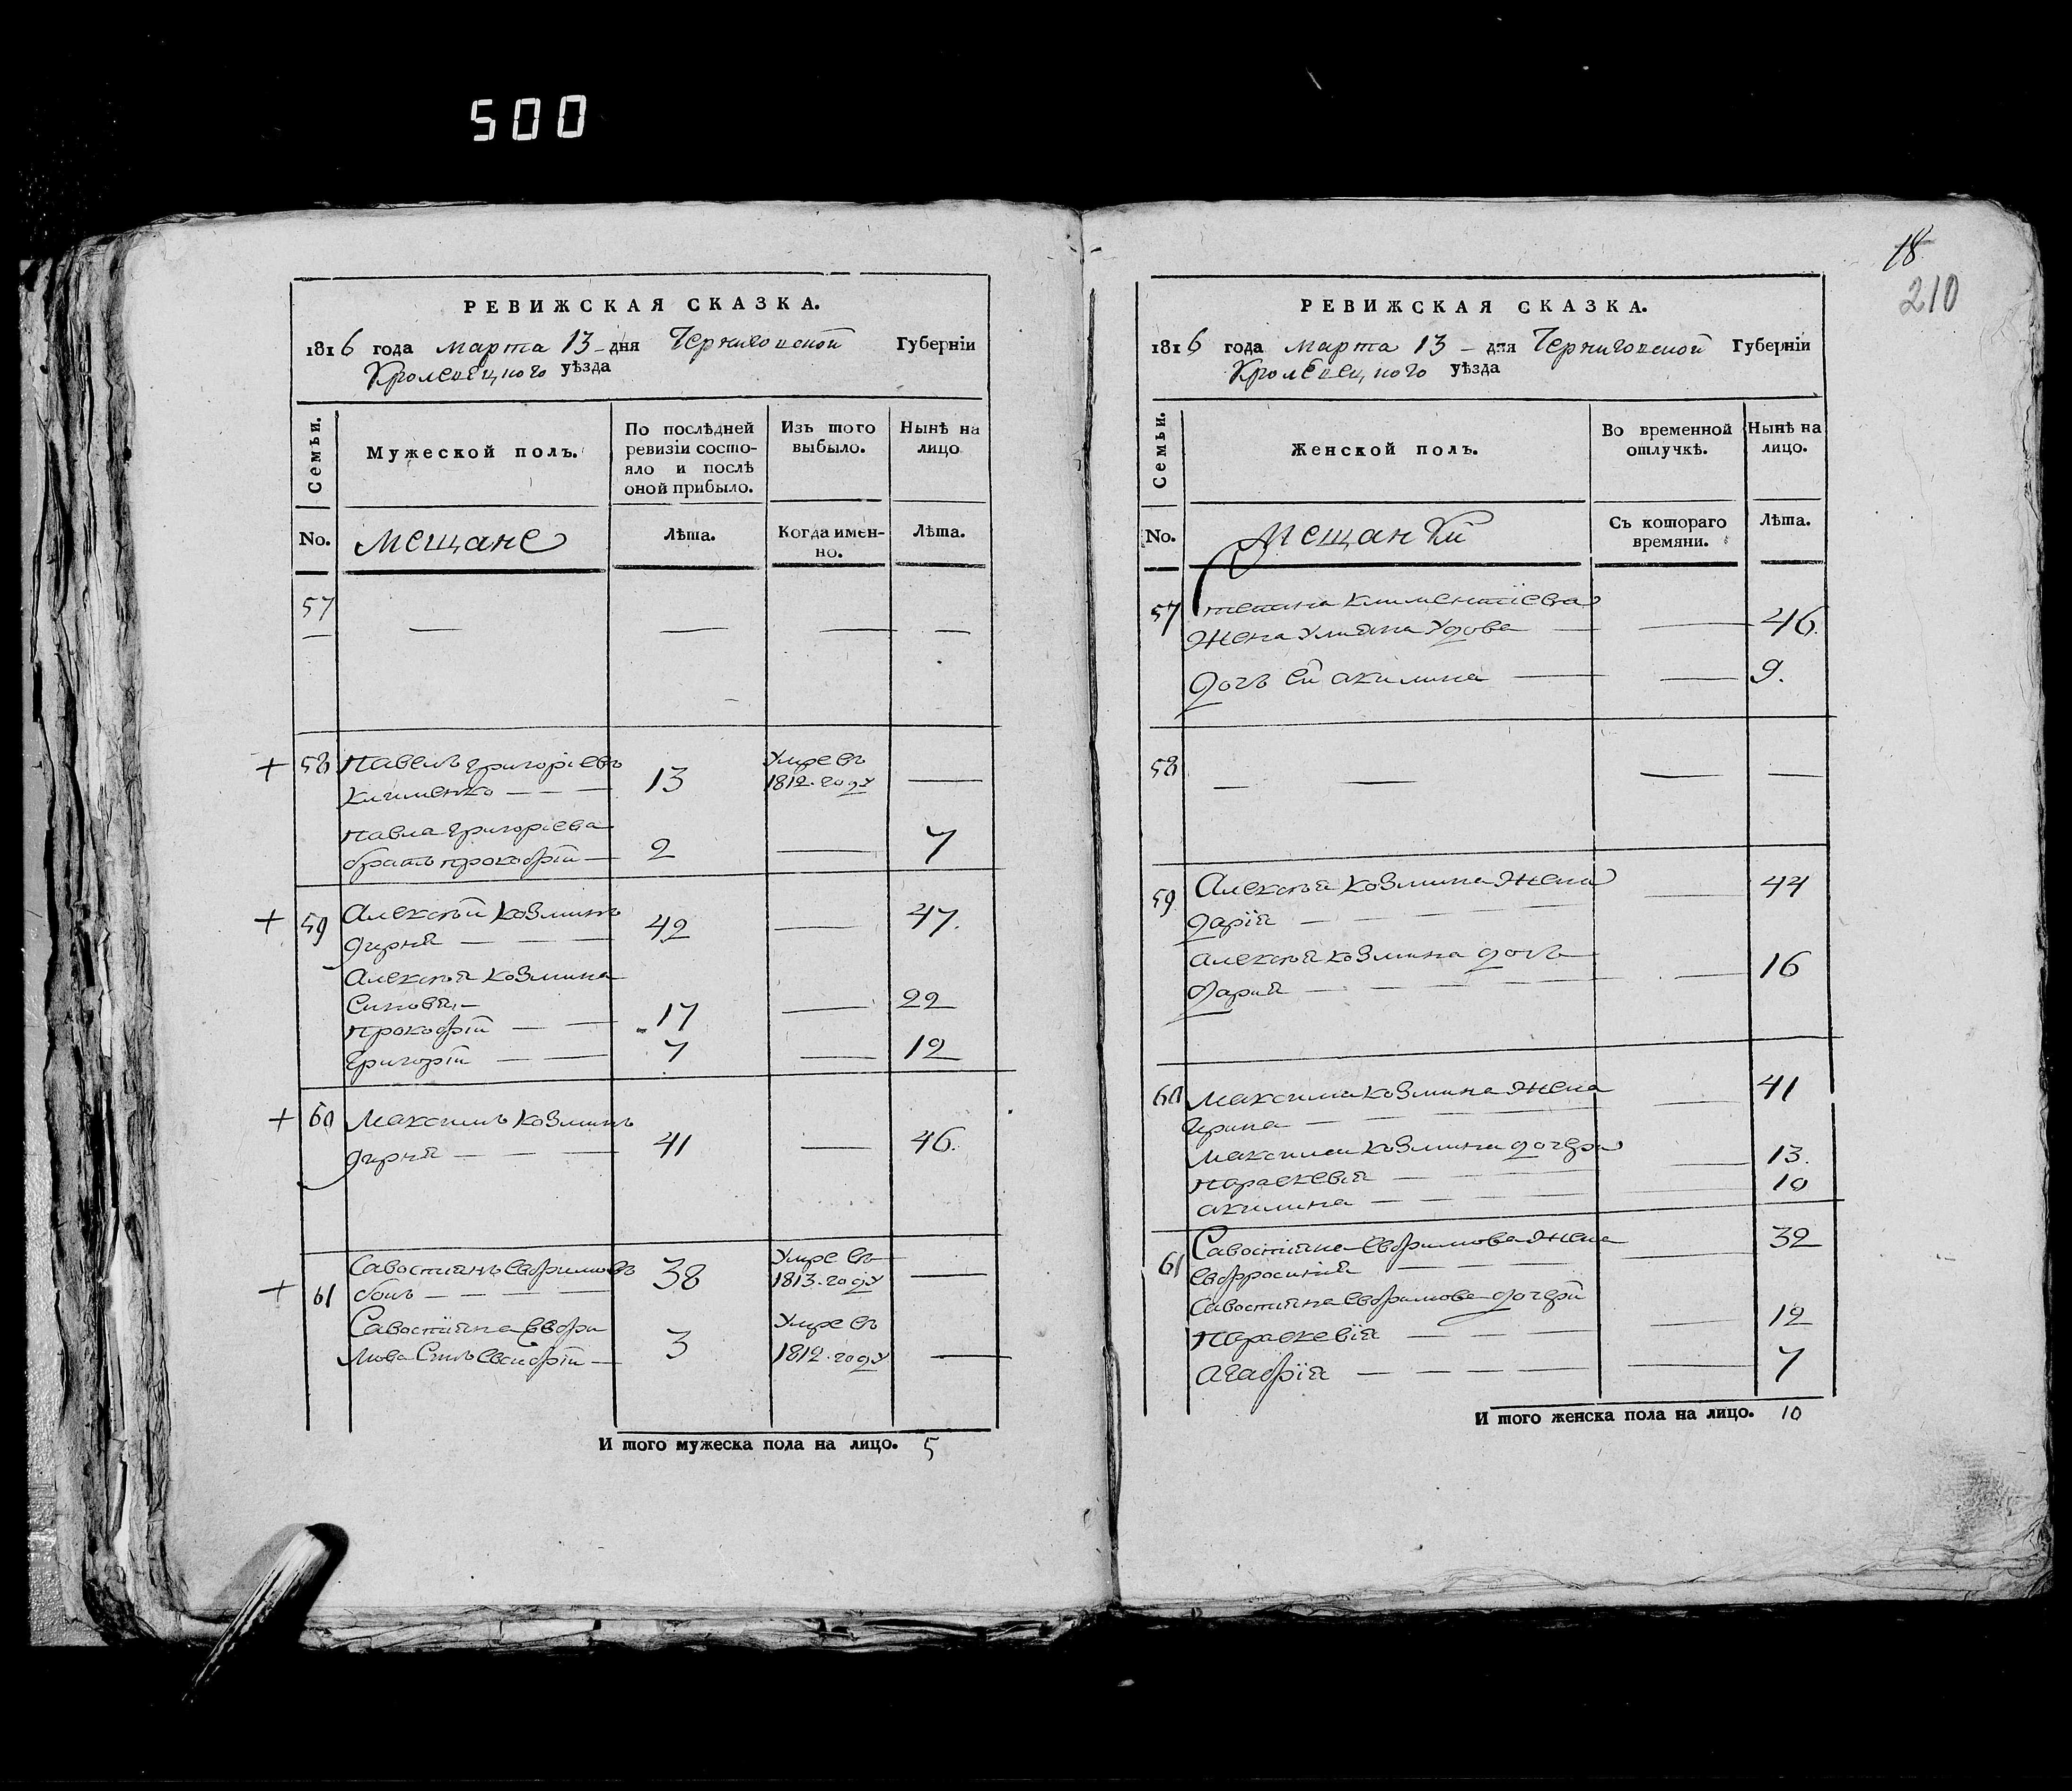 500
РЕВИЖСКАЯ СКАЗКА.
1816 года марта 13 - дня Черниговской Губерніи
Кролевецкого уѣзда
Семьи.
Мужеской полъ.
По послѣдней ревизіи состо-
яло и послѣ
оной прибыло.
Изъ того
выбыло.
Нынѣ на
лицо
No.
мещане
Лѣта.
Когда имен-
но.
Лѣта.
57
58 Павелъ григоріевъ
Клименко 13 Умре въ 1812. году
павла григоріева
братъ прокофій 2 7
59 Алексѣй козминъ
дирня 42 47.
Алексѣя козмина
Синовя
прокофій 17 22
григорій 7 12
60 Максимъ козминъ
дирня 41 46.
61 Савостиянъ Евфимовъ
бонъ 38 Умре въ 1813. году
Савостіяна Евфи
мова Синъ 3 Умре въ 1812. году
И того мужеска пола на лицо. 5
18
210
РЕВИЖСКАЯ СКАЗКА.
1816 года марта 13 - дня Черниговской Губерніи
Кролевецкого уѣзда
Семьи.
Женской полъ.
Во временной
отлучкѣ.
Нынѣ на
лицо.
No.
Мещанки
Съ котораго
времяни.
Лѣта.
57 климентіева
Жена Улияна Удова 46.
Дочъ ей акилина 9.
58
59 Алексѣя козмина Жена
дарія 44
Алексѣя козмина дочь
дария 16
60 Максима козмина Жена 41
ирина
Максима козмина дочери
параскевія 13.
акилина 10
61 Савостіяна Евфимова Жена 32
Евфросинія
Савостіяна Евфимова дочери
Параскевія 12
Агафія 7
И того женска пола на лицо. 10